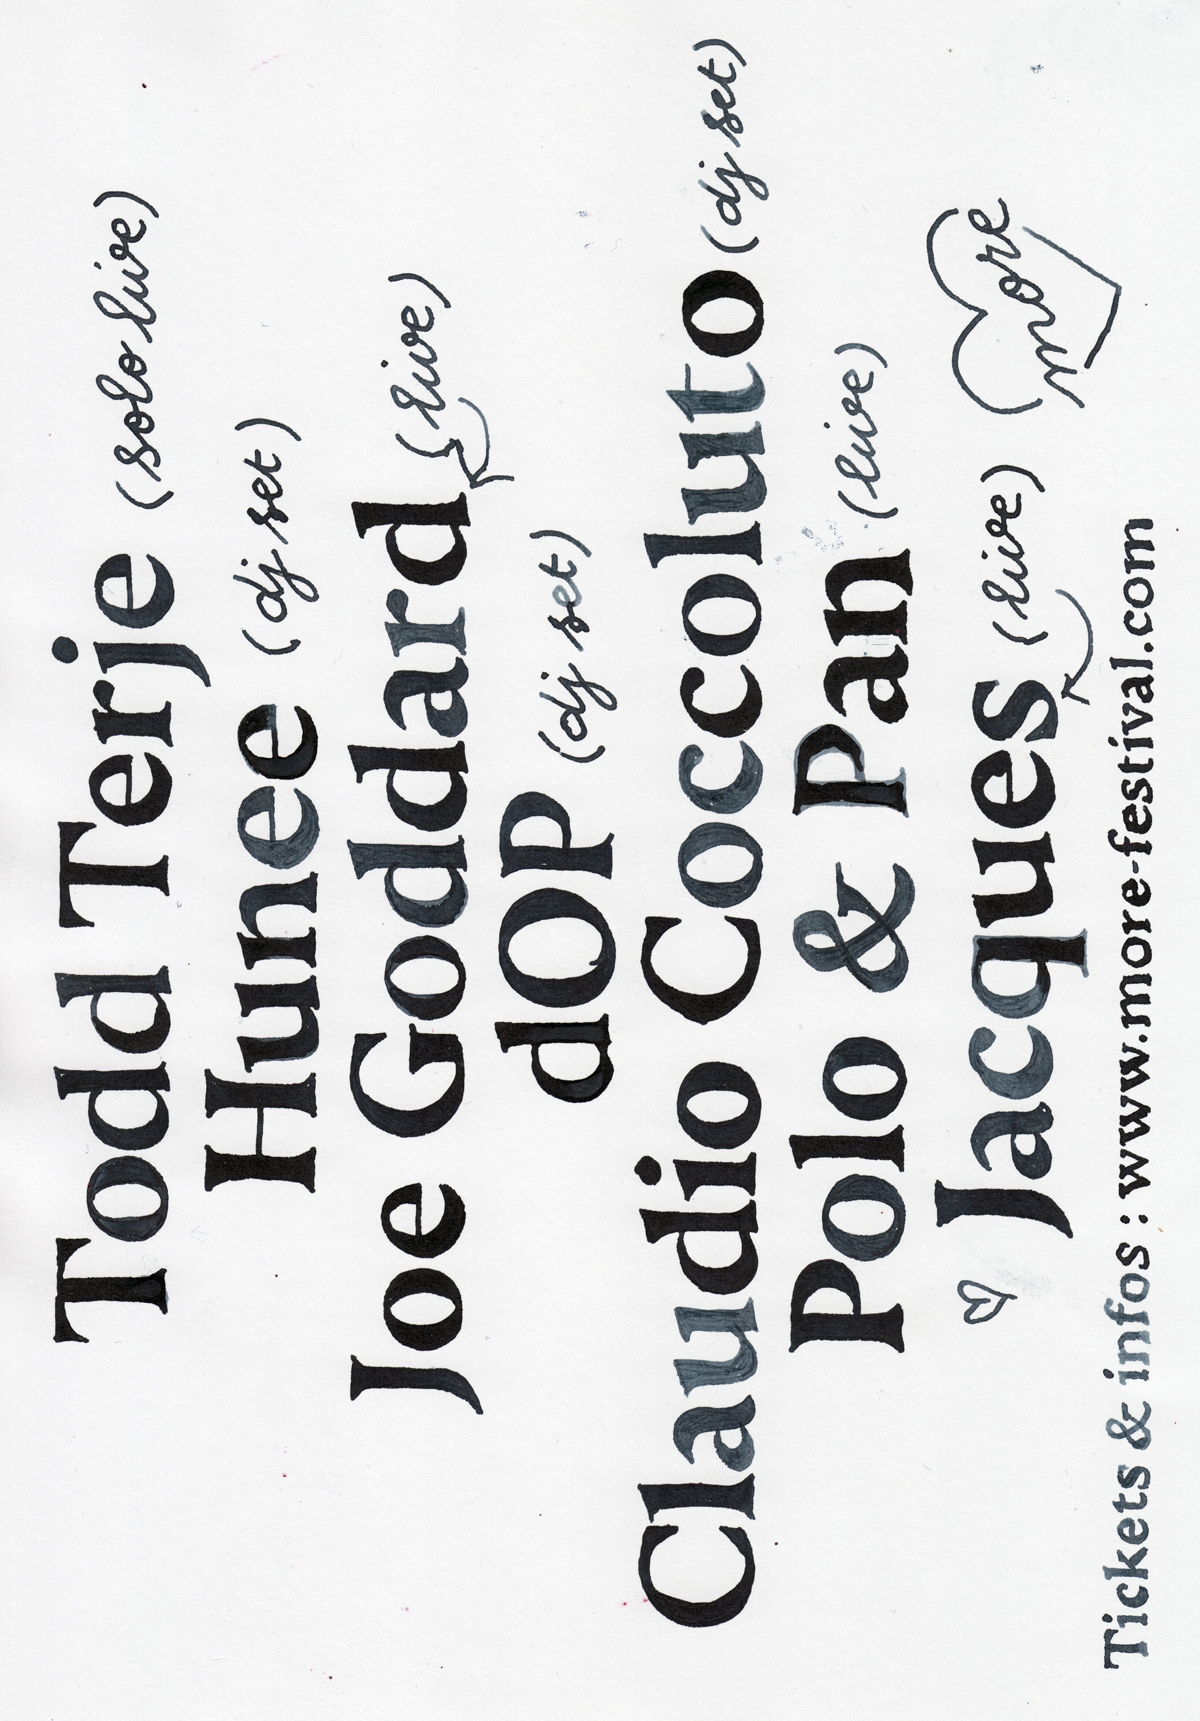 Todd Terje (solo live)
Hunee (dj set)
Joe Goddard (live)
dOP (dj set)
Claudio Coccoluto (dj set)
Polo & Pan (live)
Jacques (live)
more
Tickets & infos : www.more-festival.com